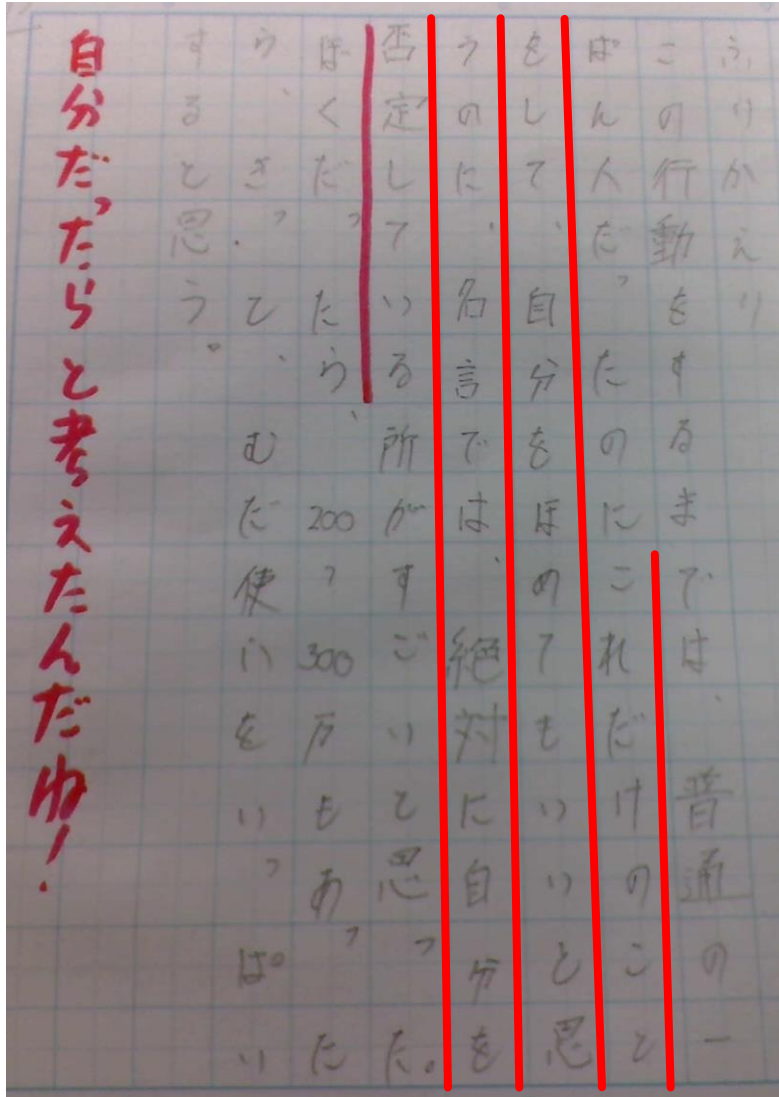 ふりかえり
この行動をするまでは、普通の一
ぱん人だったのにこれだけのこと
をして、自分をほめてもいいと思
うのに、名言では、絶対に自分を
否定している所がすごいと思った。
ぼくだったら、200〜300万もあった
ら、きっと、むだ使いをいっぱい
すると思う。
自分だったらと考えたんだね!